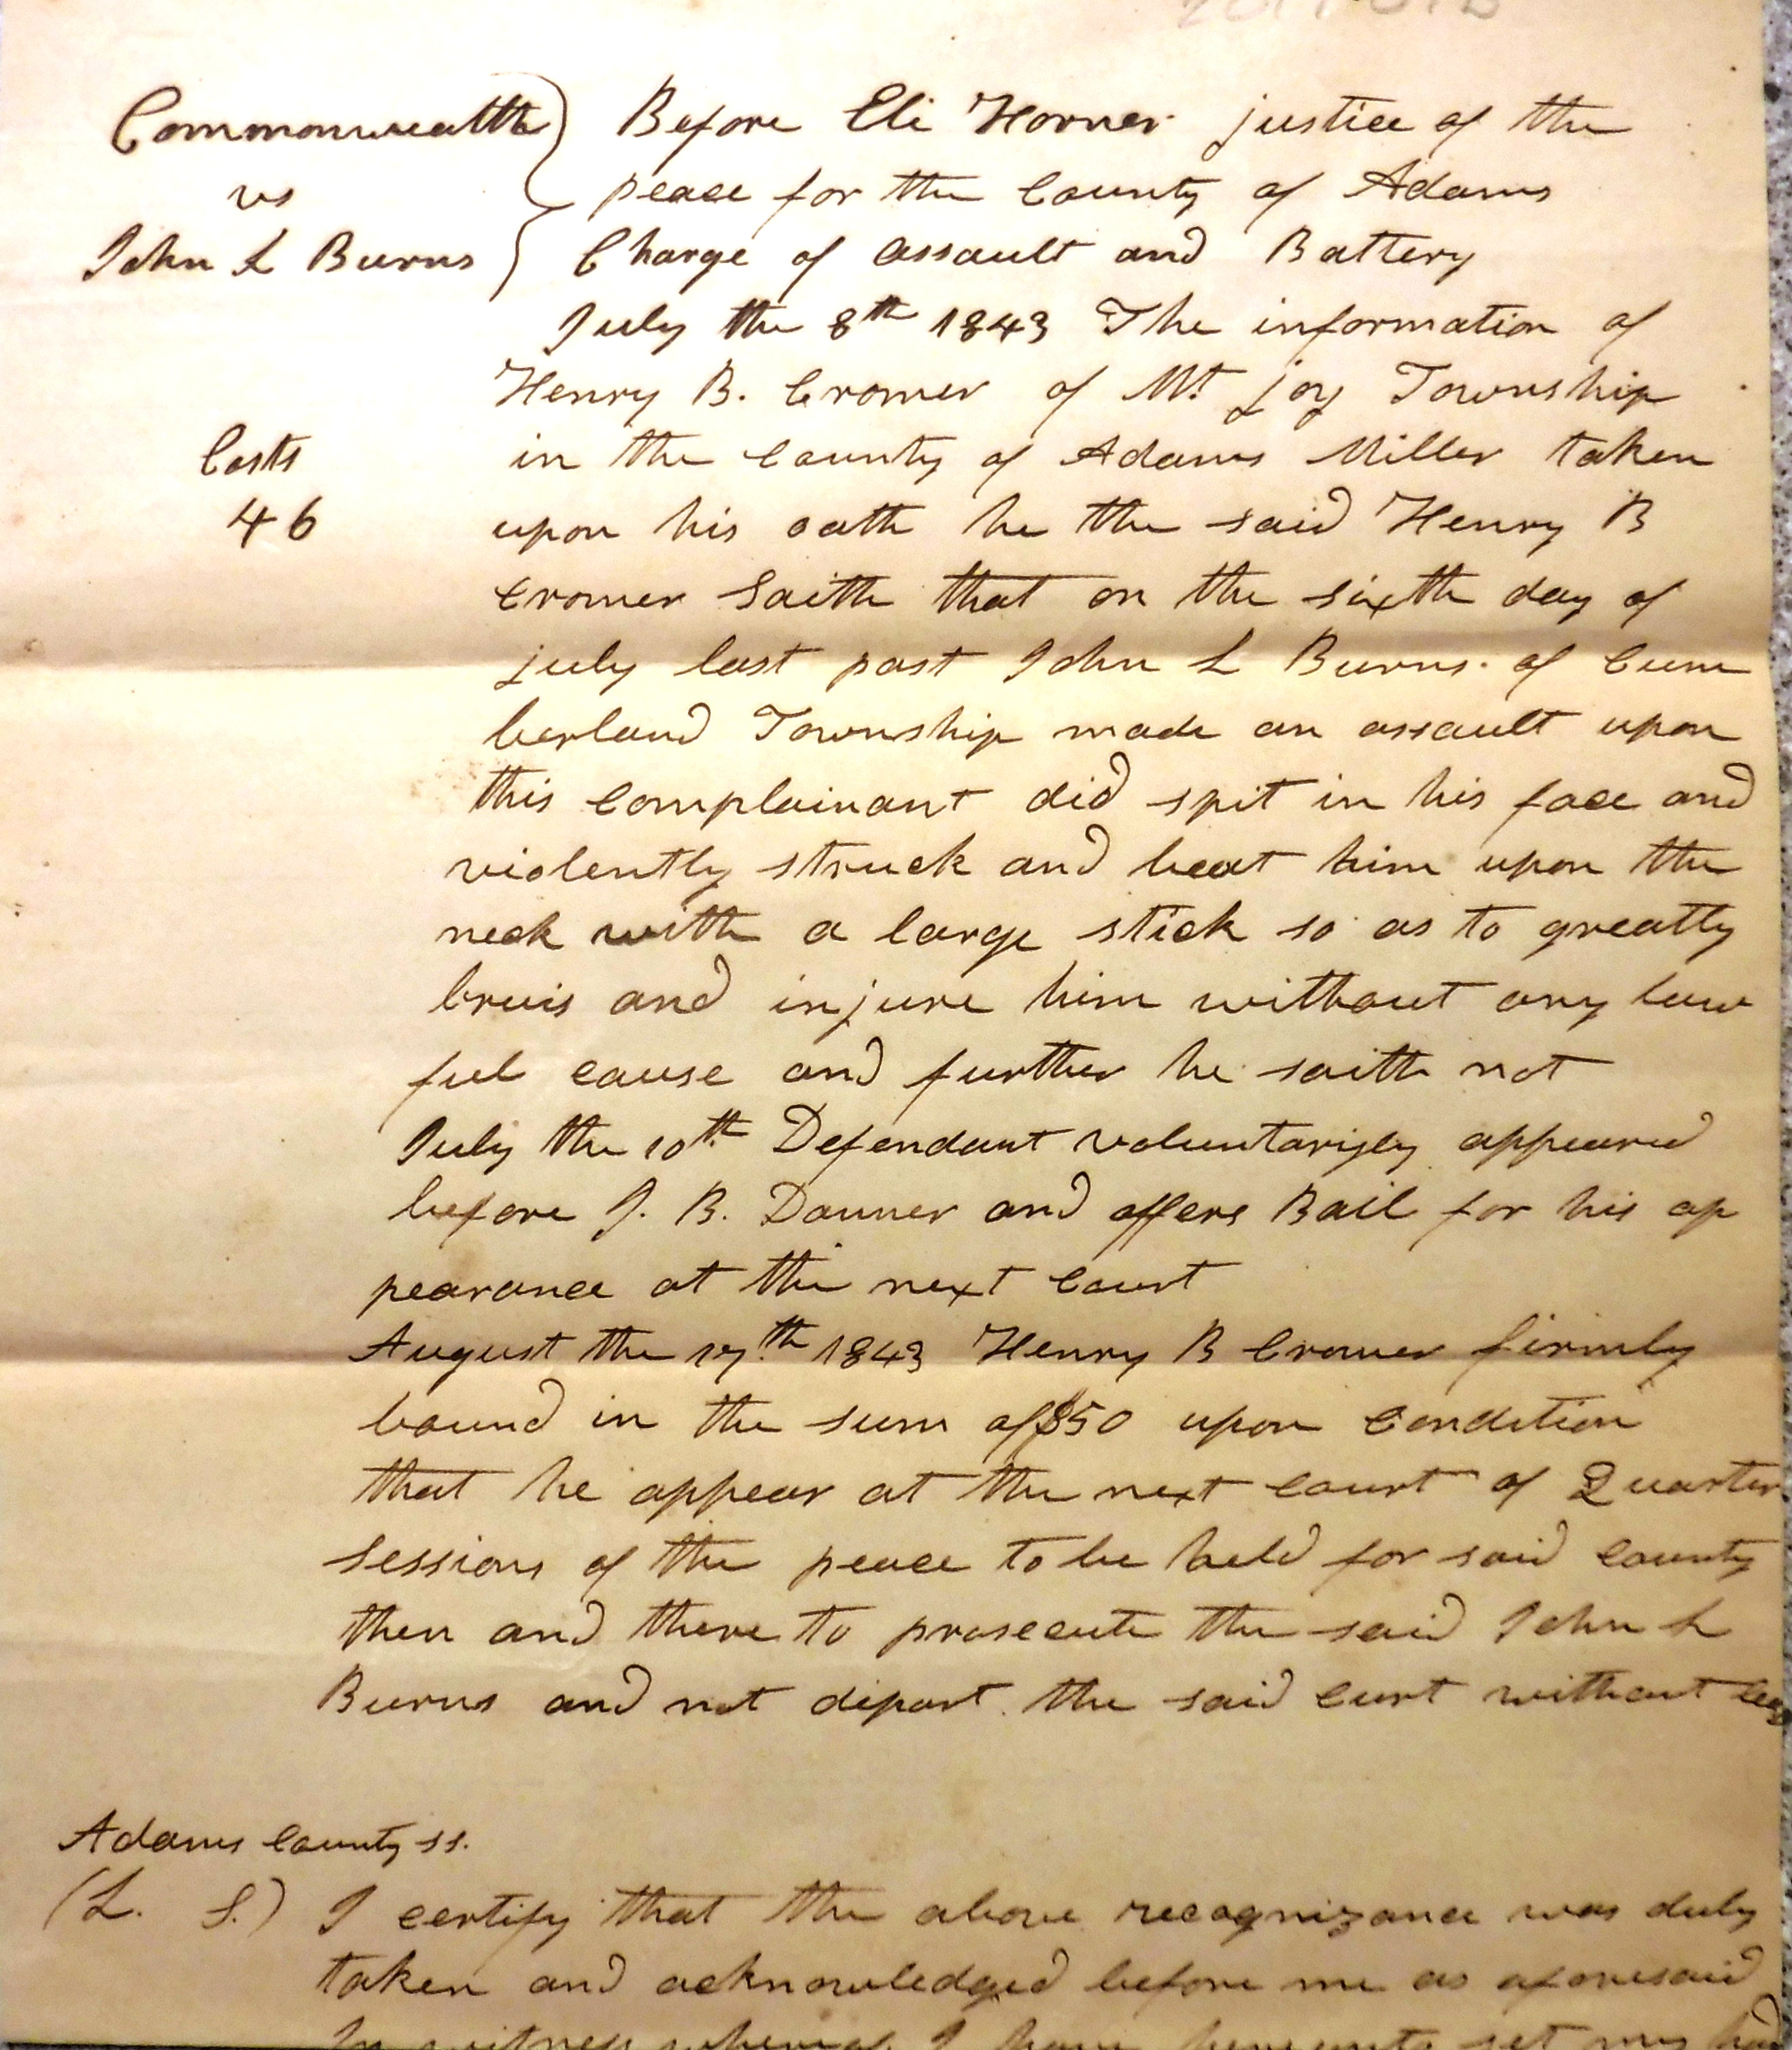 Commonwealth
vs
John L Burns
Before Eli Horner justice of the
peace for the County of Adams
Charge of assault and Battery
July the 8th 1843 The information of
Henry B. Cromer of Mt joy Township
Costs
46
in the County of Adams Miller taken
upon his oath he the said Henry B
Cromer Saith that on the sixth day of
july last past John L Burns. of Cum
berland Township made an assault upon
this complainant did spit in his face and
violently struck and beat him upon the
neck with a large stick so as to greatly
bruis and injure him without any law
ful cause and further he saith not
July the 10th Defendant voluntarily appeared
before J. B. Danner and offers Bail for his ap
pearance at the next Court
August the 17th 1843 Henry B Cromer firmly
bound in the sum of $50 upon condition
that he appear at the next court of Quarter
sessions of the peace to be held for said county
then and there to prosecute the said John L
Burns and not depart the said curt without
Adams County ss.
(L. S.) I certify that the above recognizance was duly
taken and acknowledged before me as aforesaid
In witness whereof I have hereunto set my